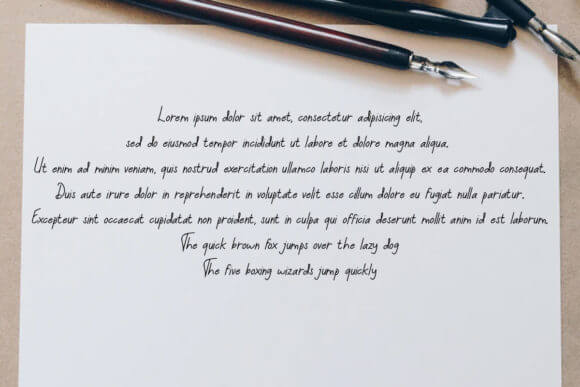 Lorem ipsum dolor sit amet, consectetur adipisicing elit,
sed do eiusmod tempor incididunt ut labore et dolore magna aliqua.
Ut enim ad minim veniam, quis nostrud exercitation ullamco laboris nisi ut aliquip ex ea commodo consequat.
Duis aute irure dolor in reprehenderit in voluptate velit esse cillum dolore eu fugiat nulla pariatur.
Excepteur sint occaecat cupidatat non proident, sunt in culpa qui officia deserunt mollit anim id est laborum.
The quick brown fox jumps over the lazy dog
The five boxing wizards jump quickly